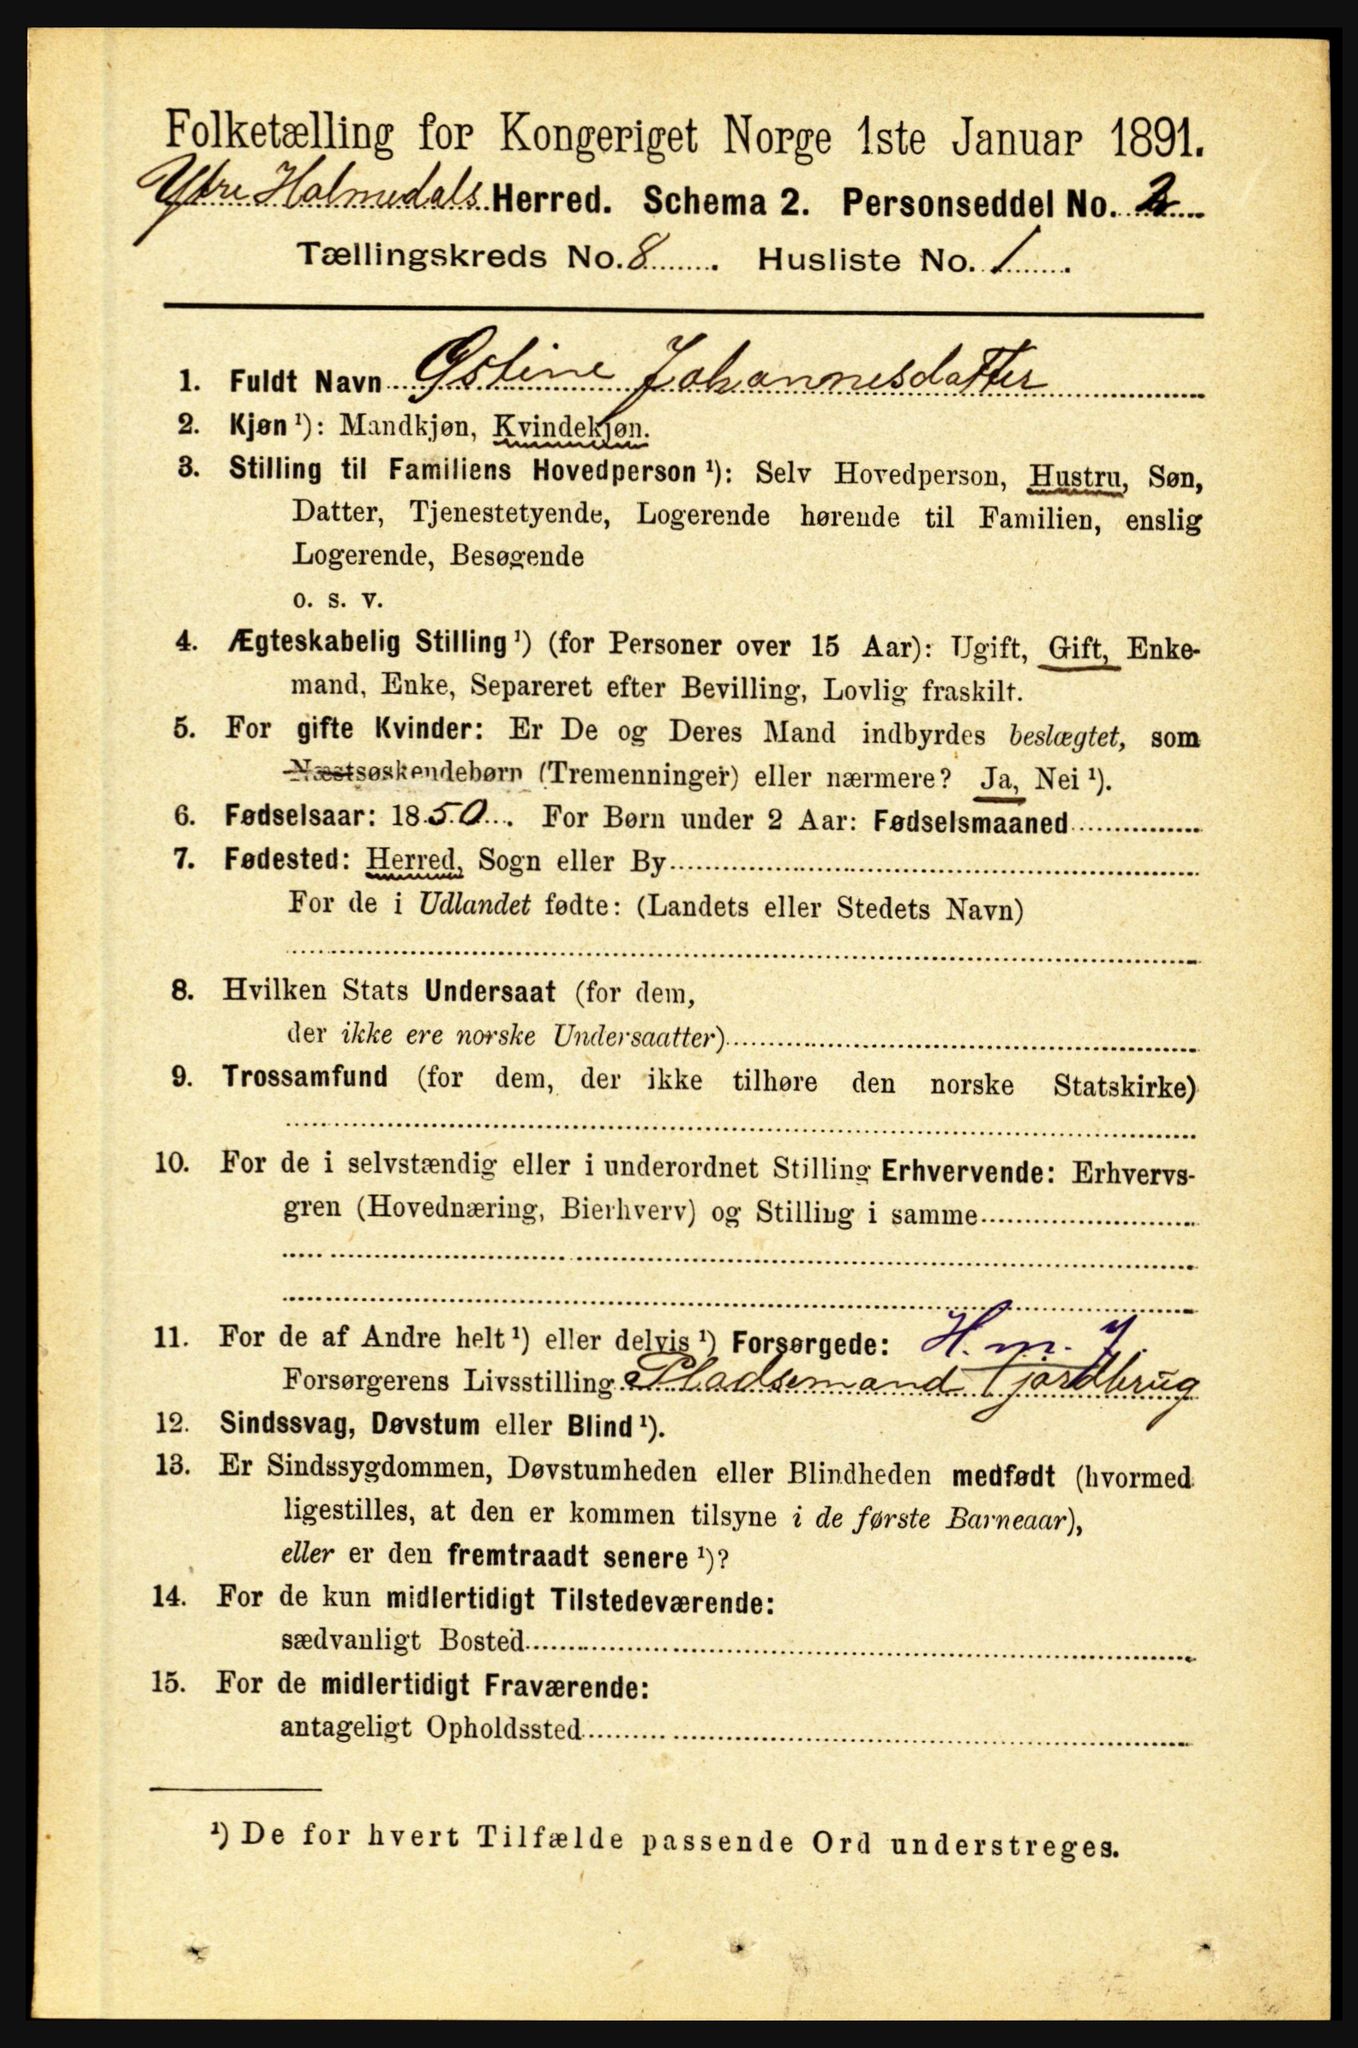 Folketælling for Kongeriget Norge 1ste Januar 1891.
Ydre Holmedals Herred. Schema 2. Personseddel No. 2
Tællingskreds No. 8. Husliste No. 1.
1. Fuldt Navn Østine Johannesdatter
2. Kjøn ¹): Mandkjøn, Kvindekjøn.
3. Stilling til Familiens Hovedperson ¹): Selv Hovedperson, Hustru, Søn,
Datter, Tjenestetyende, Logerende hørende til Familien, enslig
Logerende, Besøgende
o. s. v.
4. Ægteskabelig Stilling ¹) (for Personer over 15 Aar): Ugift, Gift, Enke-
mand, Enke, Separeret efter Bevilling, Lovlig fraskilt.
5. For gifte Kvinder: Er De og Deres Mand indbyrdes beslægtet, som
Næstsøskendebørn (Tremenninger) eller nærmere? Ja, Nei ¹).
6. Fødselsaar: 1850. For Børn under 2 Aar: Fødselsmaaned
7. Fødested: Herred, Sogn eller By
For de i Udlandet fødte: (Landets eller Stedets Navn)
8. Hvilken Stats Undersaat (for dem,
der ikke ere norske Undersaatter)
9. Trossamfund (for dem, der ikke tilhøre den norske Statskirke)
10. For de i selvstændig eller i underordnet Stilling Erhvervende: Erhvervs-
gren (Hovednæring, Bierhverv) og Stilling i samme
11. For de af Andre helt ¹) eller delvis ¹) Forsørgede: H. m. J.
Forsørgerens Livsstilling Pladsemand Jordbrug
12. Sindssvag, Døvstum eller Blind ¹).
13. Er Sindssygdommen, Døvstumheden eller Blindheden medfødt (hvormed
ligestilles, at den er kommen tilsyne i de første Barneaar),
eller er den fremtraadt senere ¹)?
14. For de kun midlertidigt Tilstedeværende:
sædvanligt Bosted
15. For de midlertidigt Fraværende:
antageligt Opholdssted
¹) De for hvert Tilfælde passende Ord understreges.